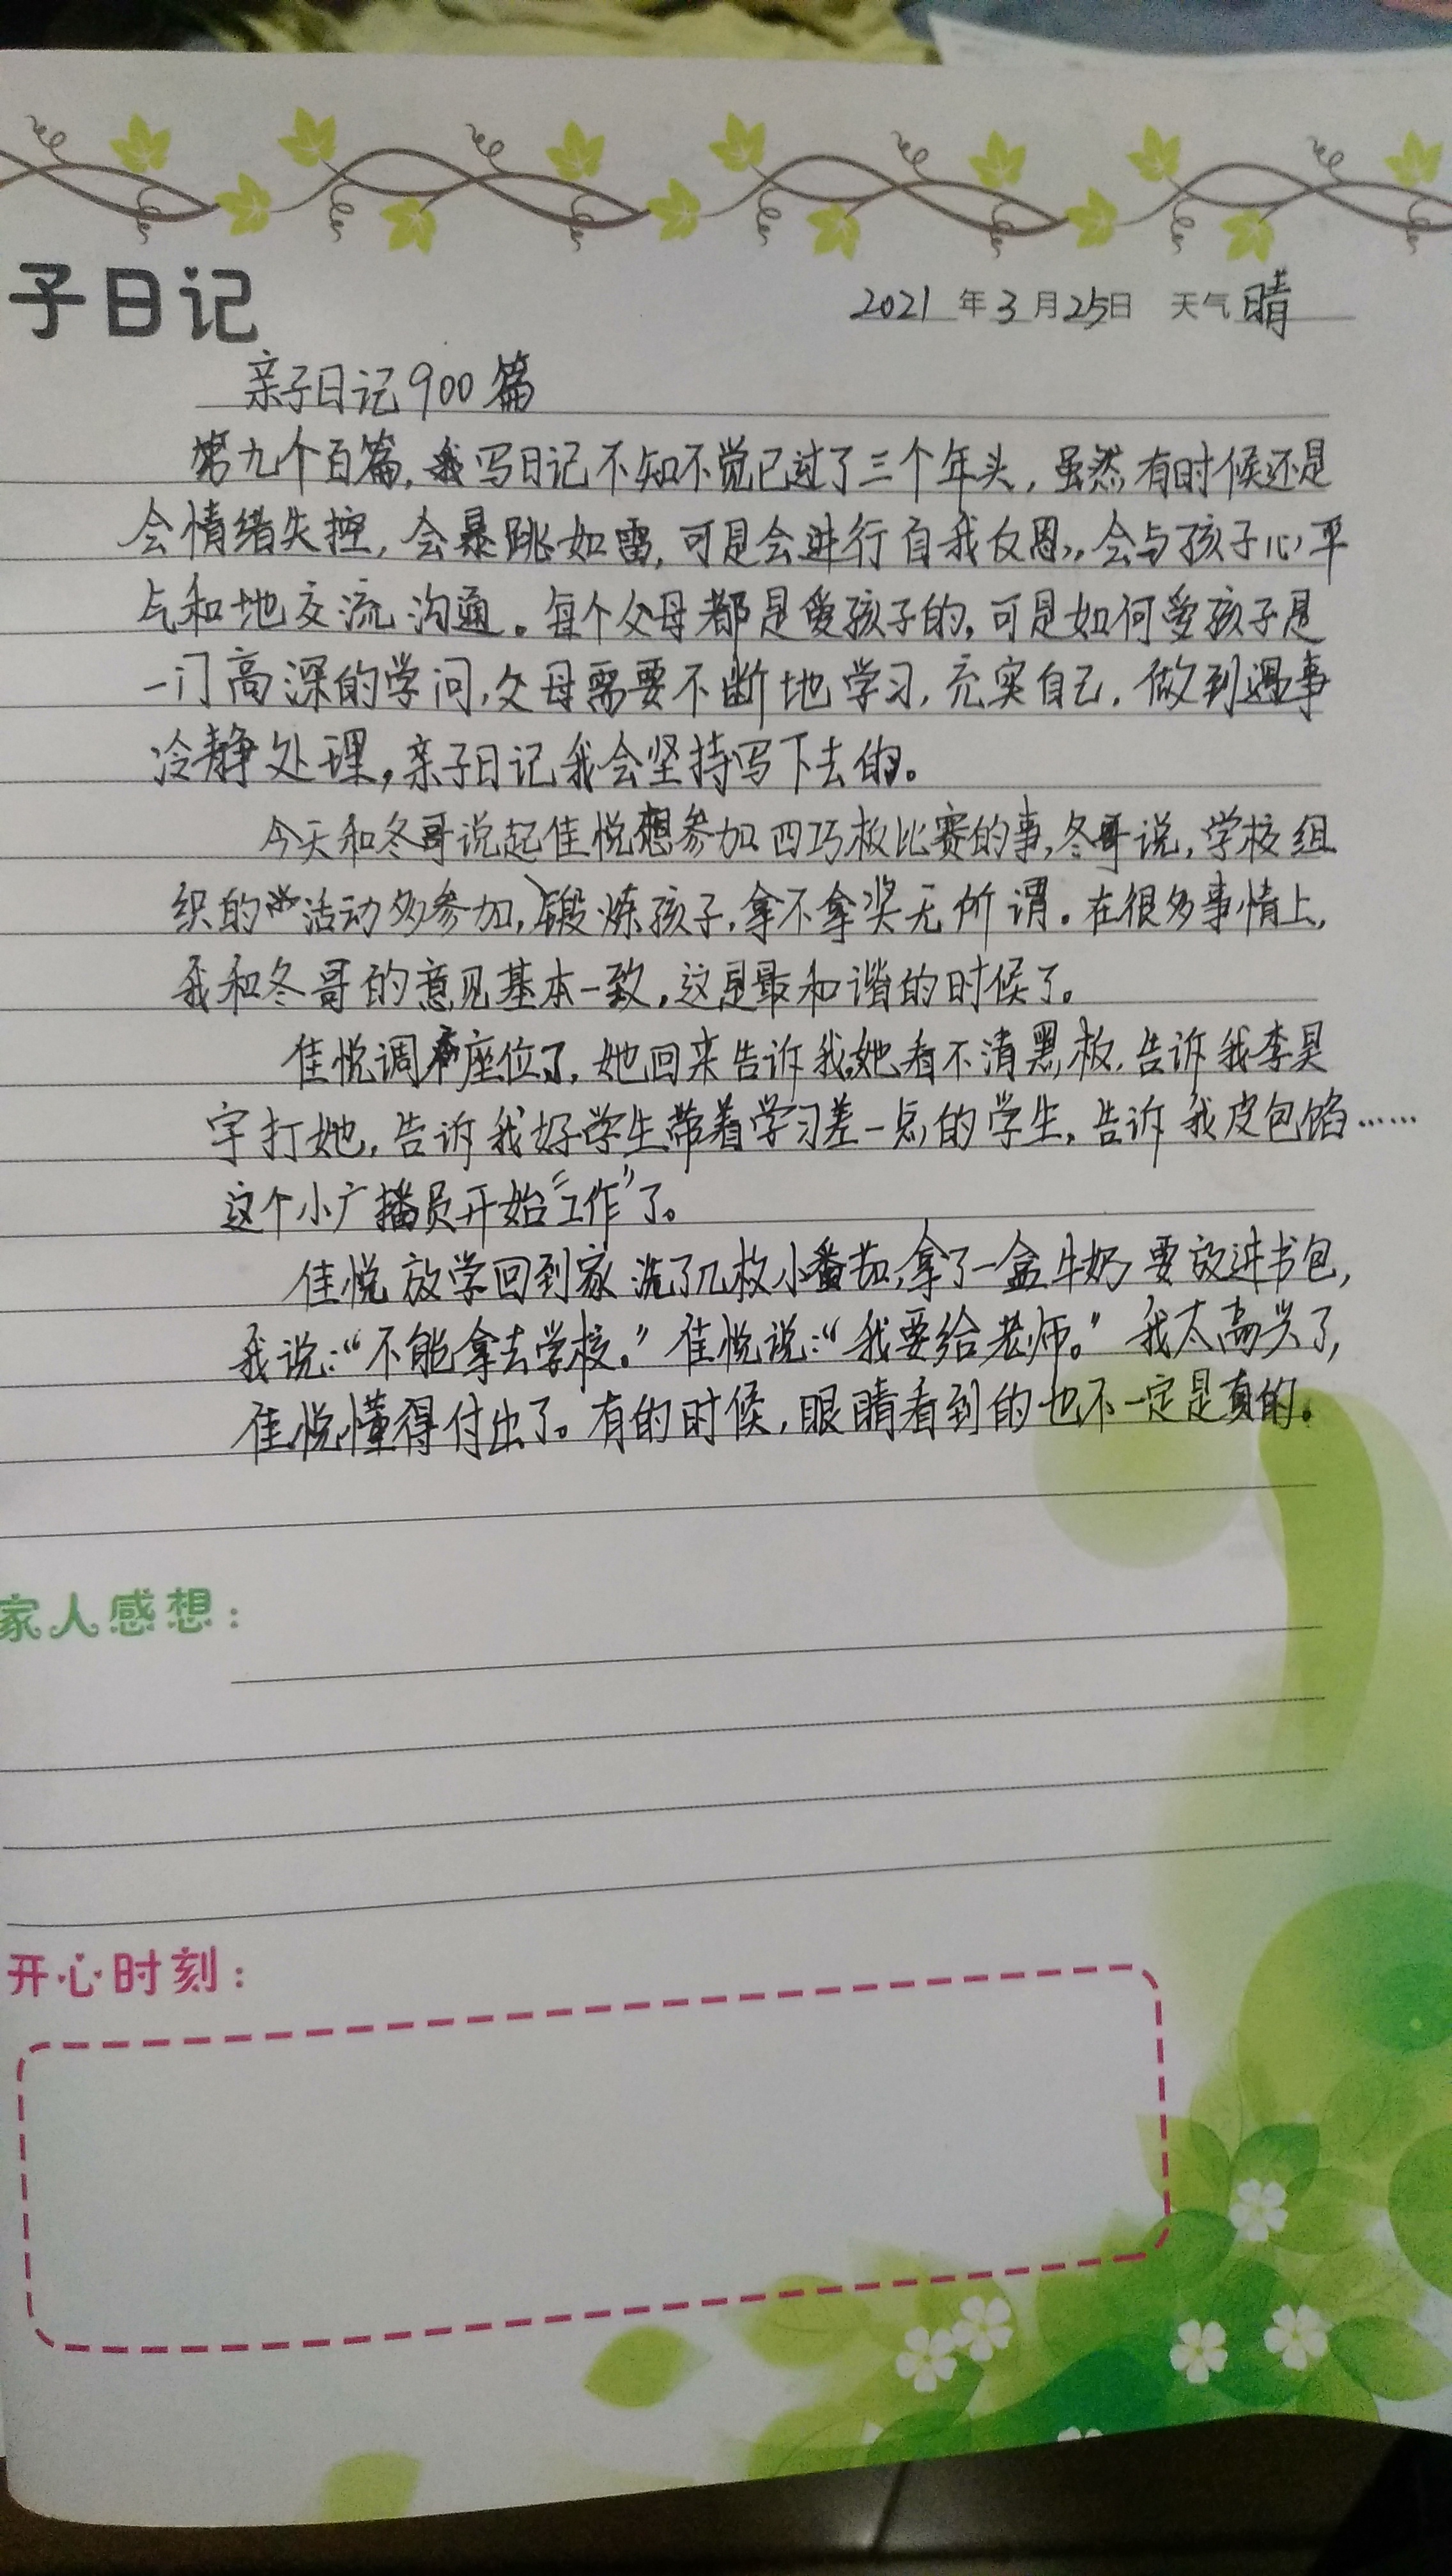 子日记
2021年3月25日 天气晴
亲子日记900篇
第九个百篇,我写日记不知不觉已过了三个年头,虽然有时候还是
会情绪失控,会暴跳如雷,可是会进行自我反思,会与孩子心平
气和地交流沟通。每个父母都是爱孩子的,可是如何爱孩子是
一门高深的学问,父母需要不断地学习,充实自己,做到遇事
冷静处理,亲子日记我会坚持写下去的。
今天和冬哥说起佳悦想参加四巧板比赛的事,冬哥说,学校组
织的活动多参加,锻炼孩子,拿不拿奖无所谓。在很多事情上,
我和冬哥的意见基本一致,这是最和谐的时候了。
佳悦调座位了,她回来告诉我,她看不清黑板,告诉我李昊
宇打她,告诉我好学生带着学习差一点的学生,告诉我皮包馅……
这个小广播员开始“工作”了。
佳悦放学回到家洗了几枚小番茄,拿了一盒牛奶要放进书包,
我说:“不能拿去学校。”佳悦说:“我要给老师。”我太高兴了,
佳悦懂得付出了。有的时候,眼睛看到的也不一定是真的。
家人感想:
开心时刻: